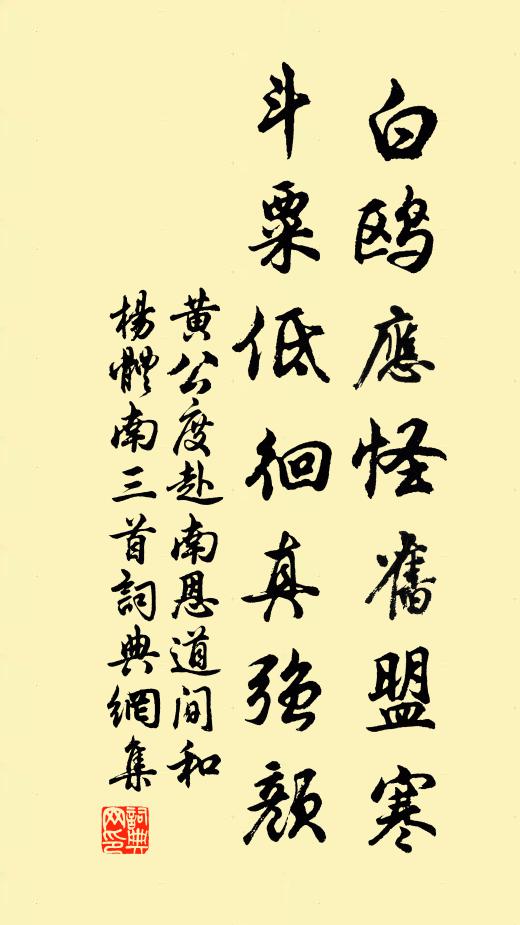 白鷗應怪舊盟寒
斗粟低徊真強顏
黄公度赴南恩道間和
楊體南三首詞典網集
詞典
网印